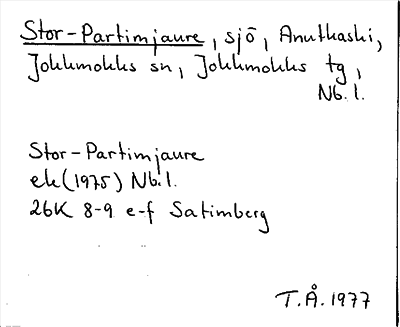 Stor-Partimjaure, sjö, Anutkaski,
Jokkmokks sn, Jokkmokks tg,
Nb.l.
Stor-Partimjaure
ek(1975) Nb.l.
26K 8-9 e-f Satimberg
T.Å.1977